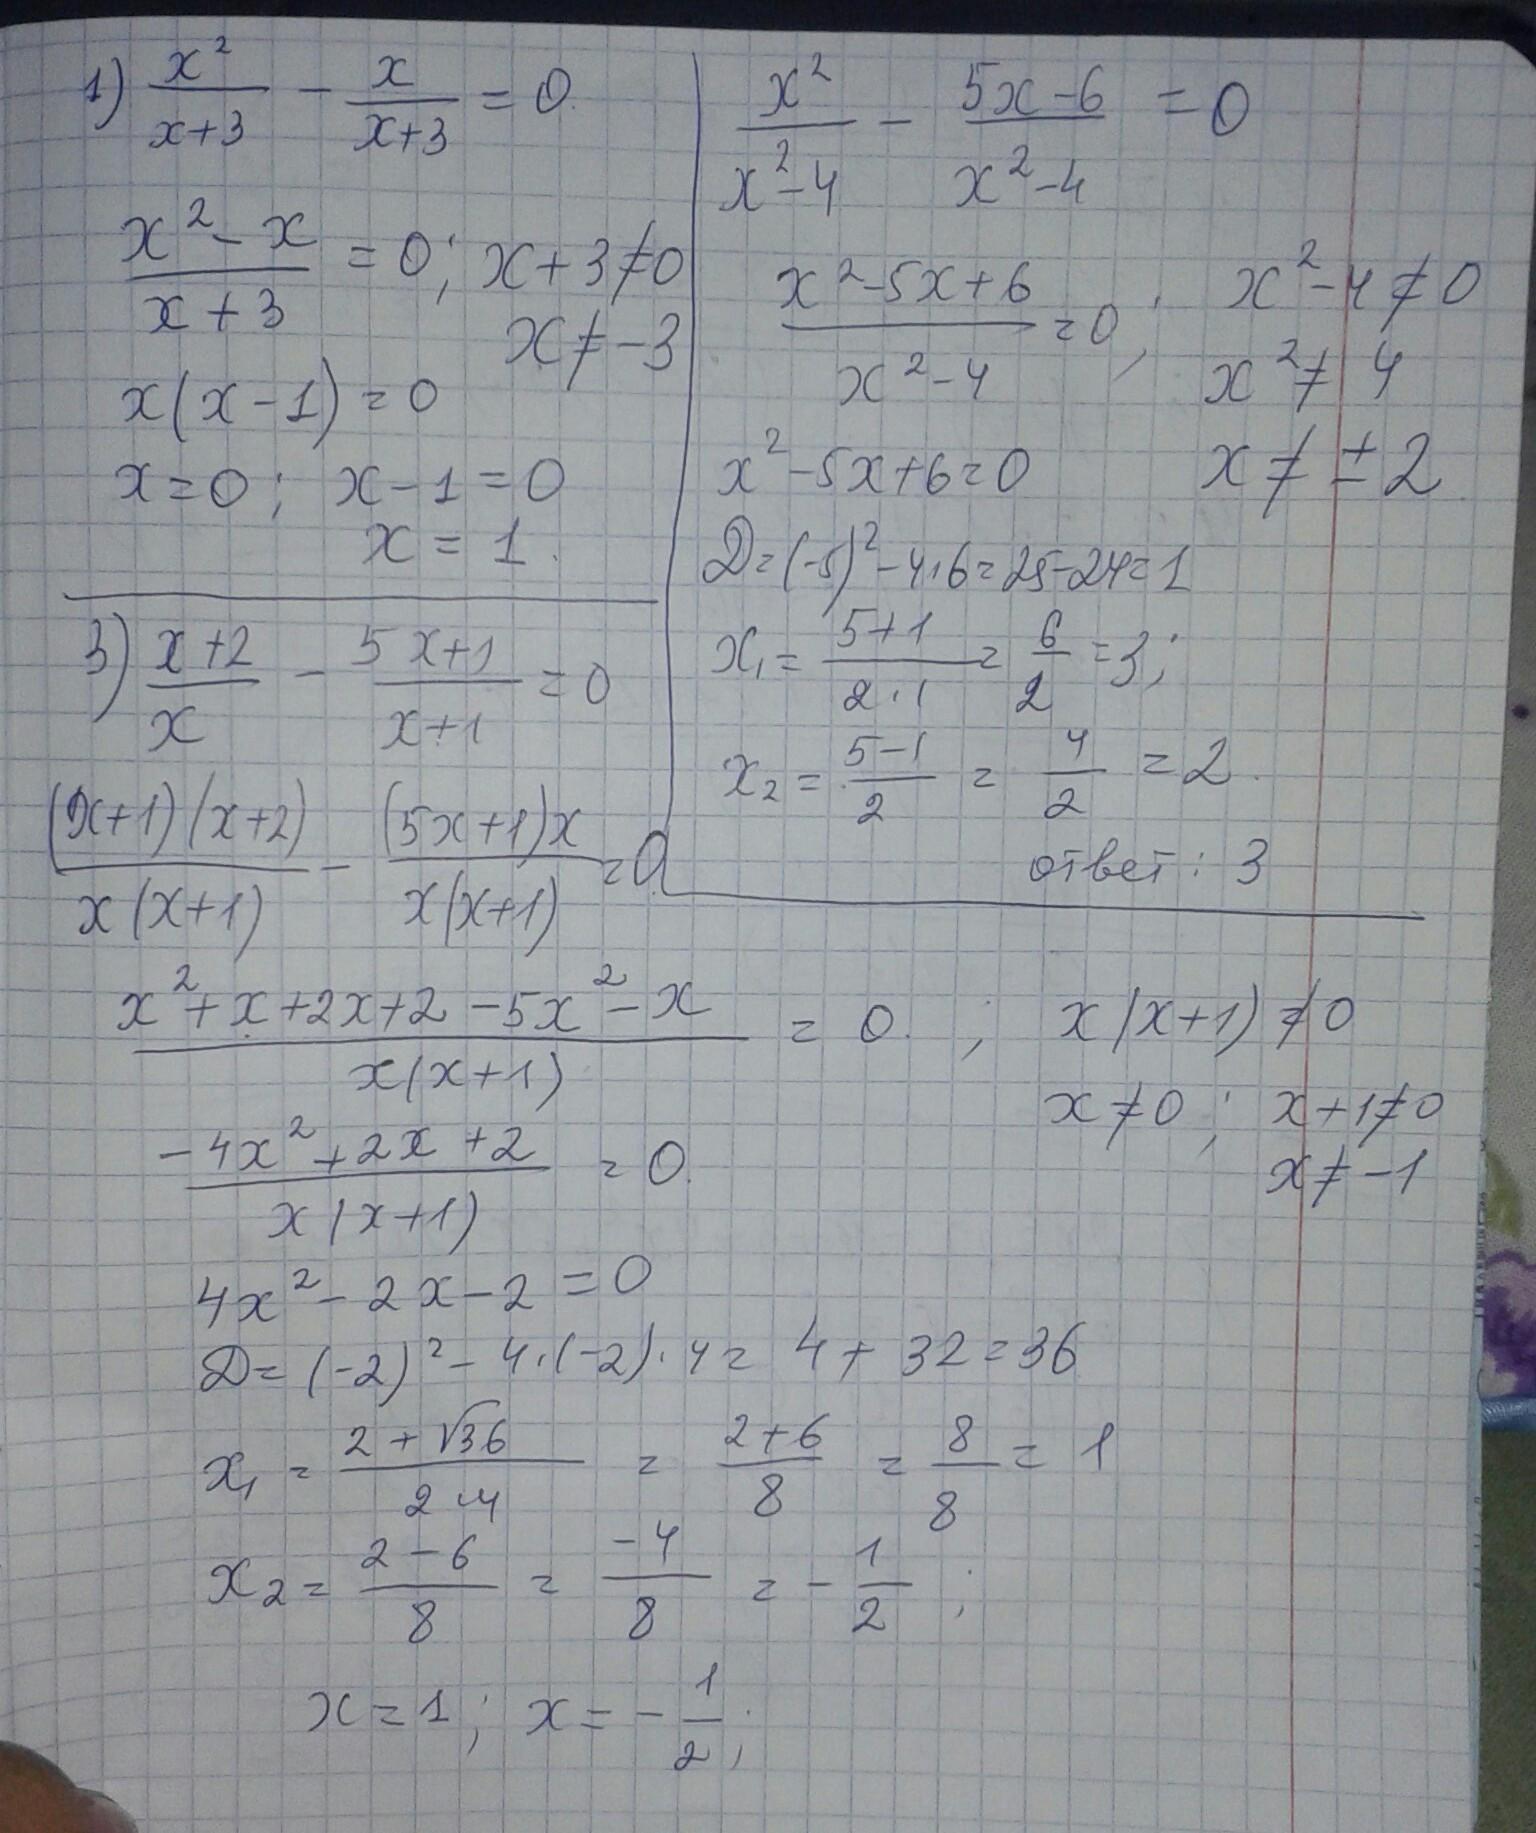 1) x²/(x+3) - x/(x+3) = 0
(x² - x)/(x+3) = 0; x+3≠0
x≠-3
x(x-1)=0
x=0; x-1=0
x=1.
x²/(x²-4) - (5x-6)/(x²-4) = 0
(x²-5x+6)/(x²-4) = 0; x²-4≠0
x²≠4
x²-5x+6=0 x≠±2
D=(-5)²-4·6=25-24=1
x₁=(5+1)/(2·1)=6/2=3;
x₂=(5-1)/2=4/2=2.
ответ: 3
3) (x+2)/x - (5x+1)/(x+1) = 0
(x+1)(x+2)/(x(x+1)) - (5x+1)x/(x(x+1)) = 0
(x²+x+2x+2-5x²-x)/(x(x+1)) = 0; x(x+1)≠0
x≠0; x+1≠0
x≠-1
(-4x²+2x+2)/(x(x+1)) = 0
4x²-2x-2=0
D=(-2)²-4·(-2)·4=4+32=36
x₁=(2+√36)/(2·4)=(2+6)/8=8/8=1
x₂=(2-6)/8=-4/8=-1/2;
x=1; x=-1/2;